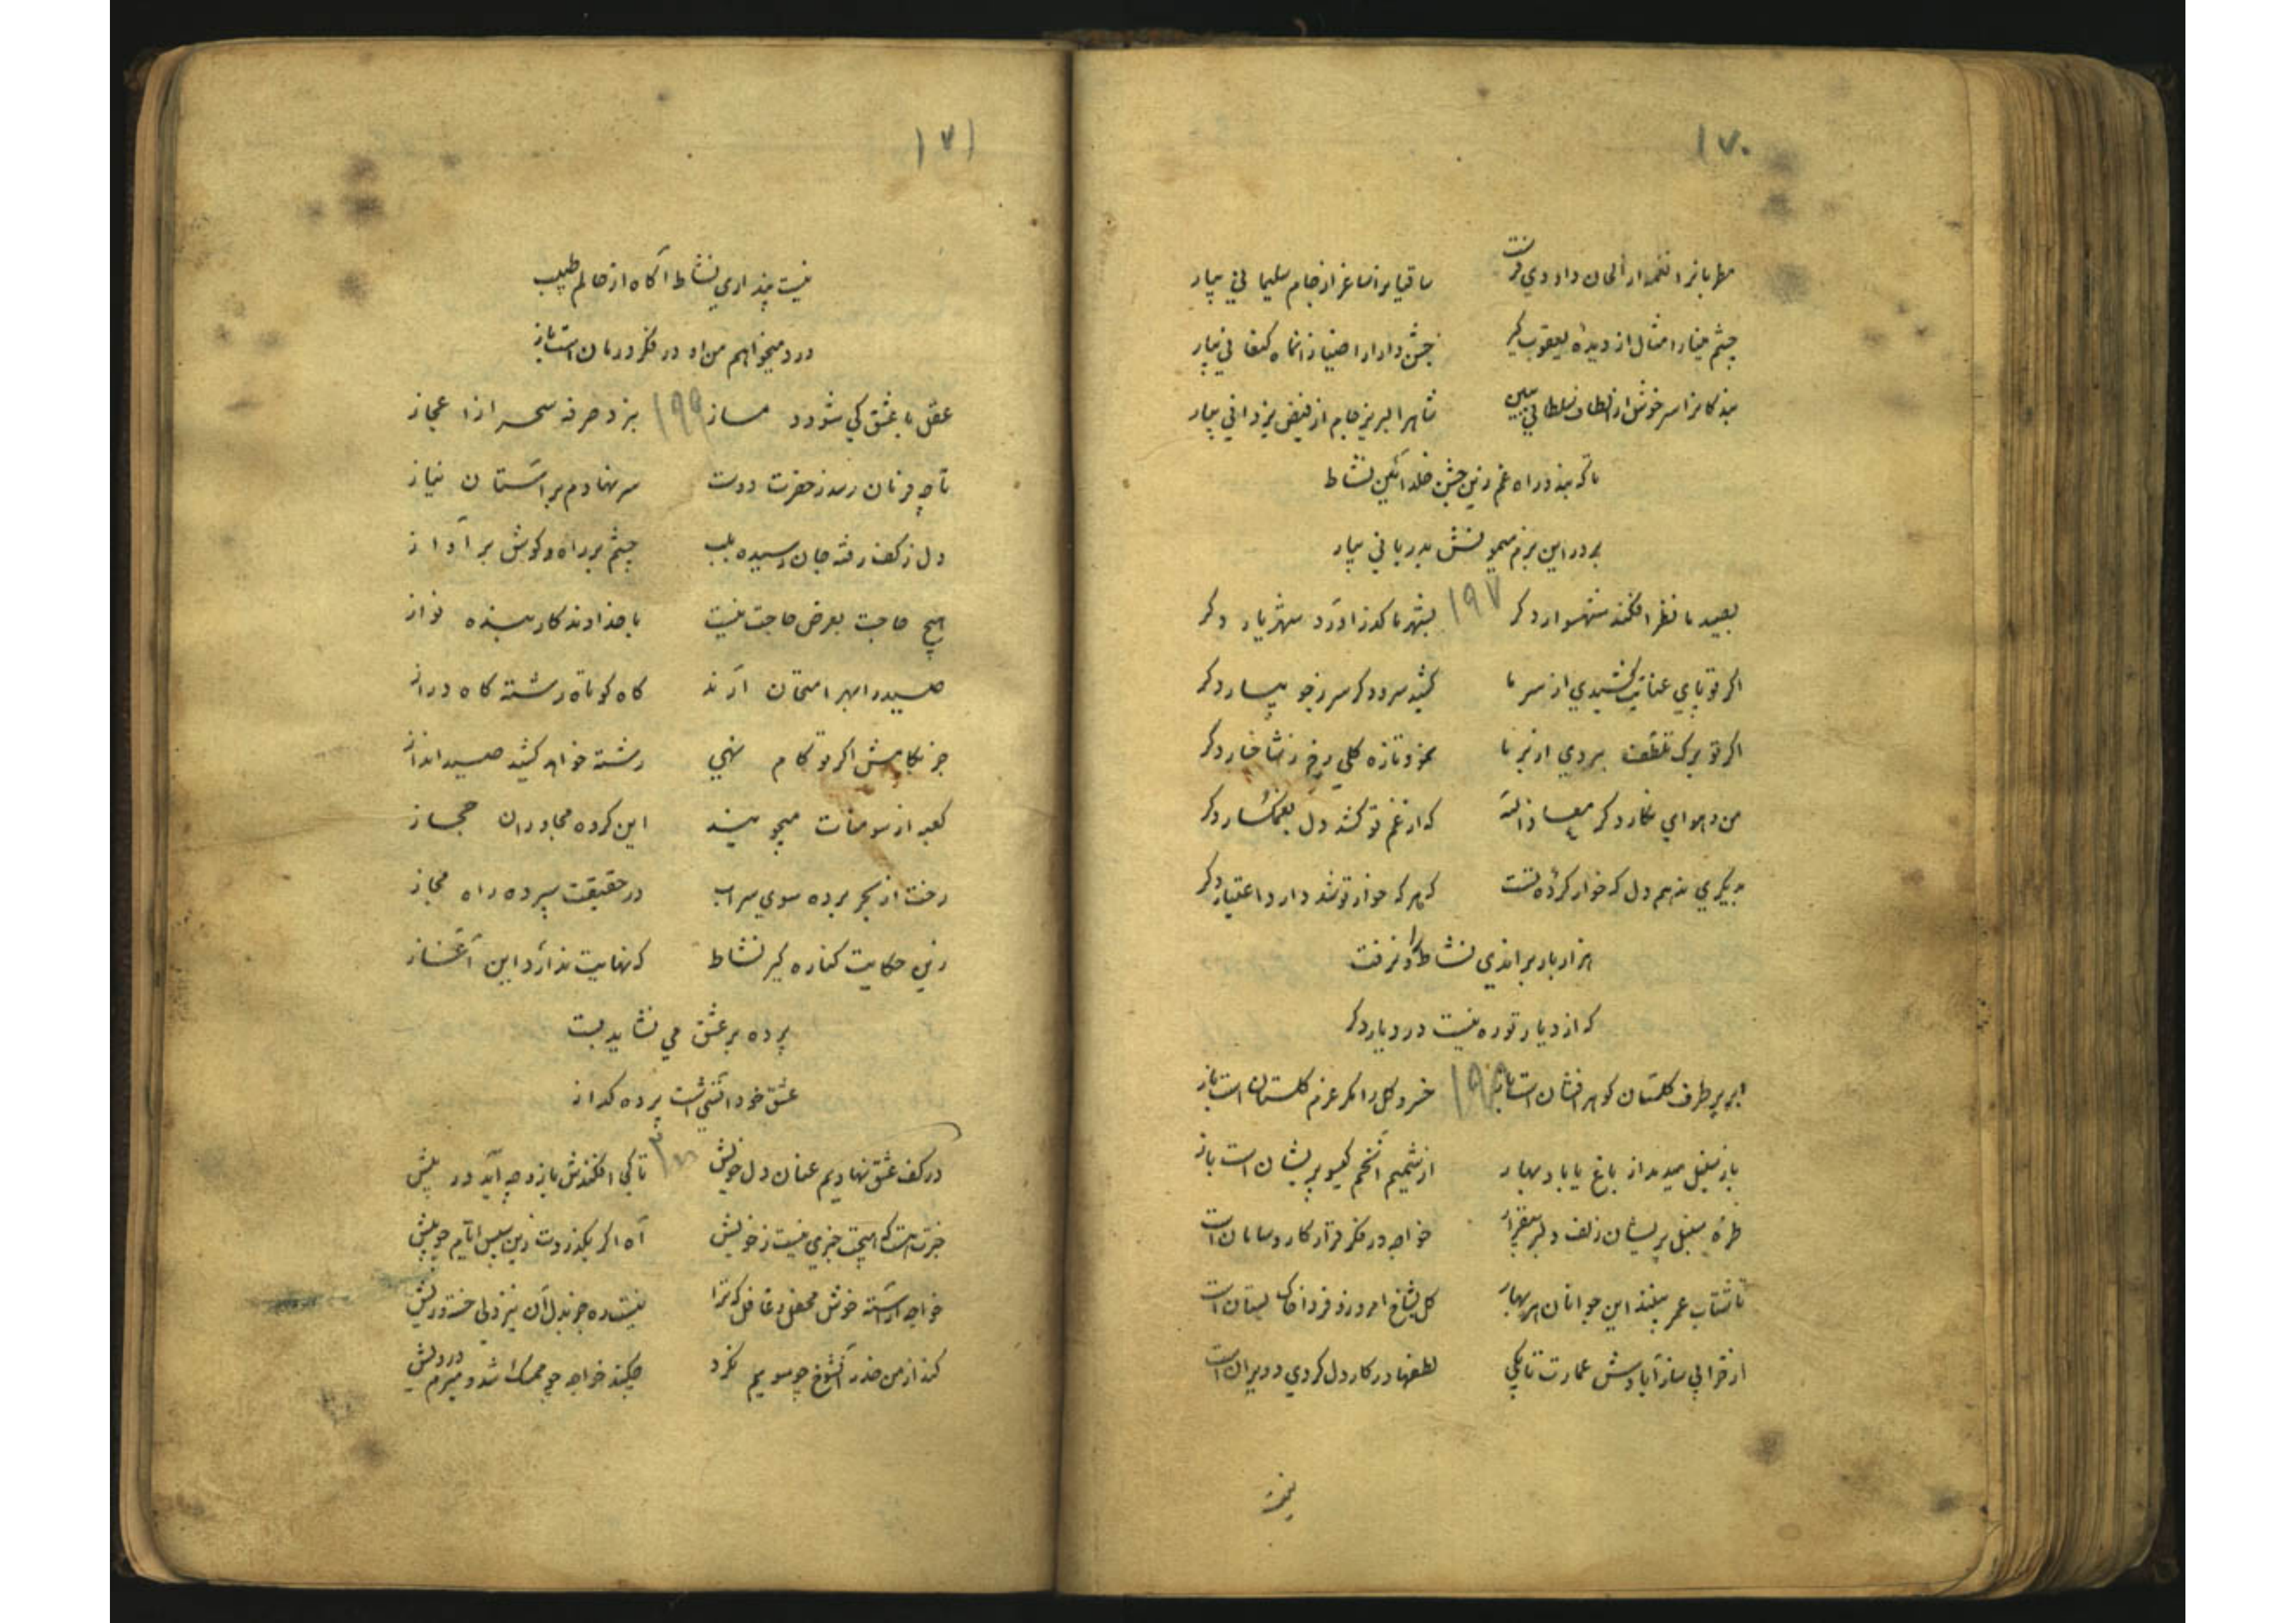 ۱۷۰
مطربا نغمه از الحان داودی
ساقیا ساغر از جام سلیمانی بیار
چشم مینا را مثال از دیده یعقوب گیر
جشن دارا را ضیا زان ماه کنعانی بیار
بندگانرا سرخوش از الطاف سلطانی ببین
شاهرا لبریز جام از فیض یزدانی بیار
تا که بندد راه غم زین جشن خلد آئین نشاط
بر در این بزم میمونش بدربانی بیار
۱۹۷
بصید ما نظر افکند شهسوار دگر
بشهر ما گذر آورد شهریار دگر
اگر تو پای عنایت کشیدی از سر ما
کشید سرو دگر سر ز جویبار دگر
اگر تو برک تلطف بریدی از بر ما
نمود تازه گلی رخ ز شاخسار دگر
من و هوای نگار دگر معاذ الله
که از غم تو کشد دل بغمگسار دگر
بدیگری ندهم دل که خوار کرده تست
که هر که خوار تو شد دارد اعتبار دگر
هزار بار براندی نشاط را و نرفت
که از دیار تو ره نیست در دیار دگر
۱۹۸
ابر بر طرف گلستان گوهر افشان است باز
خسرو گل را مگر عزم گلستان است باز
باز سنبل میدمد از باغ یا باد بهار
از شمیم آنخم گیسو پریشان است باز
طره سنبل پریشان زلف دلبر بیقرار
خواجه در فکر قرار کار و سامان است
تا شتاب عمر بینند این جوانان هر بهار
گل بشاخ امروز و فردا خاک بستان است
از خرابی ساز آبادش عمارت تا بکی
لطفها در کار دل کردی و ویران است
۱۷۱
نیست پنداری نشاط آگاه از حالم طبیب
درد میخواهم من او در فکر درمان است باز
۱۹۹
عقل با عشق کی شود دمساز
نبرد صرفه سحر از اعجاز
تا چه فرمان رسد ز حضرت دوست
سر نهادم بر آستان نیاز
دل ز کف رفته جان رسیده بلب
چشم بر راه و گوش بر آواز
هیچ حاجت بعرض حاجت نیست
با خداوندگار بنده نواز
صید را بهر امتحان آرند
گاه کوتاه رشته گاه دراز
جز بکامش اگر تو گام نهی
رشته خواهد کشید صید انداز
کعبه از سومنات میجویند
این گروه مجاوران حجاز
رخت از بحر برده سوی سراب
در حقیقت سپرده راه مجاز
زین حکایت کناره گیر نشاط
که نهایت ندارد این آغاز
پرده بر عشق می نشاید بست
عشق خود آتشی است پرده گداز
۲۰۰
در کف عشق نهادیم عنان دل خویش
تا کجا افکندش باز و چه آید در پیش
خبرت هست که هیچت خبری نیست ز خویش
آه اگر بگذردت زین سپس ایام چو پیش
خواجه آراسته خوش محفل و غافل که ترا
نیست ره جز بدل آن نیز دلی خسته و ریش
کند از من حذر آنشوخ چو سویم نگرد
چکند خواجه چو ممسک شد و مبرم درویش